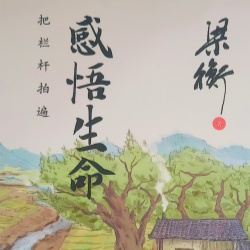 梁衡
感悟生命
把栏杆拍遍